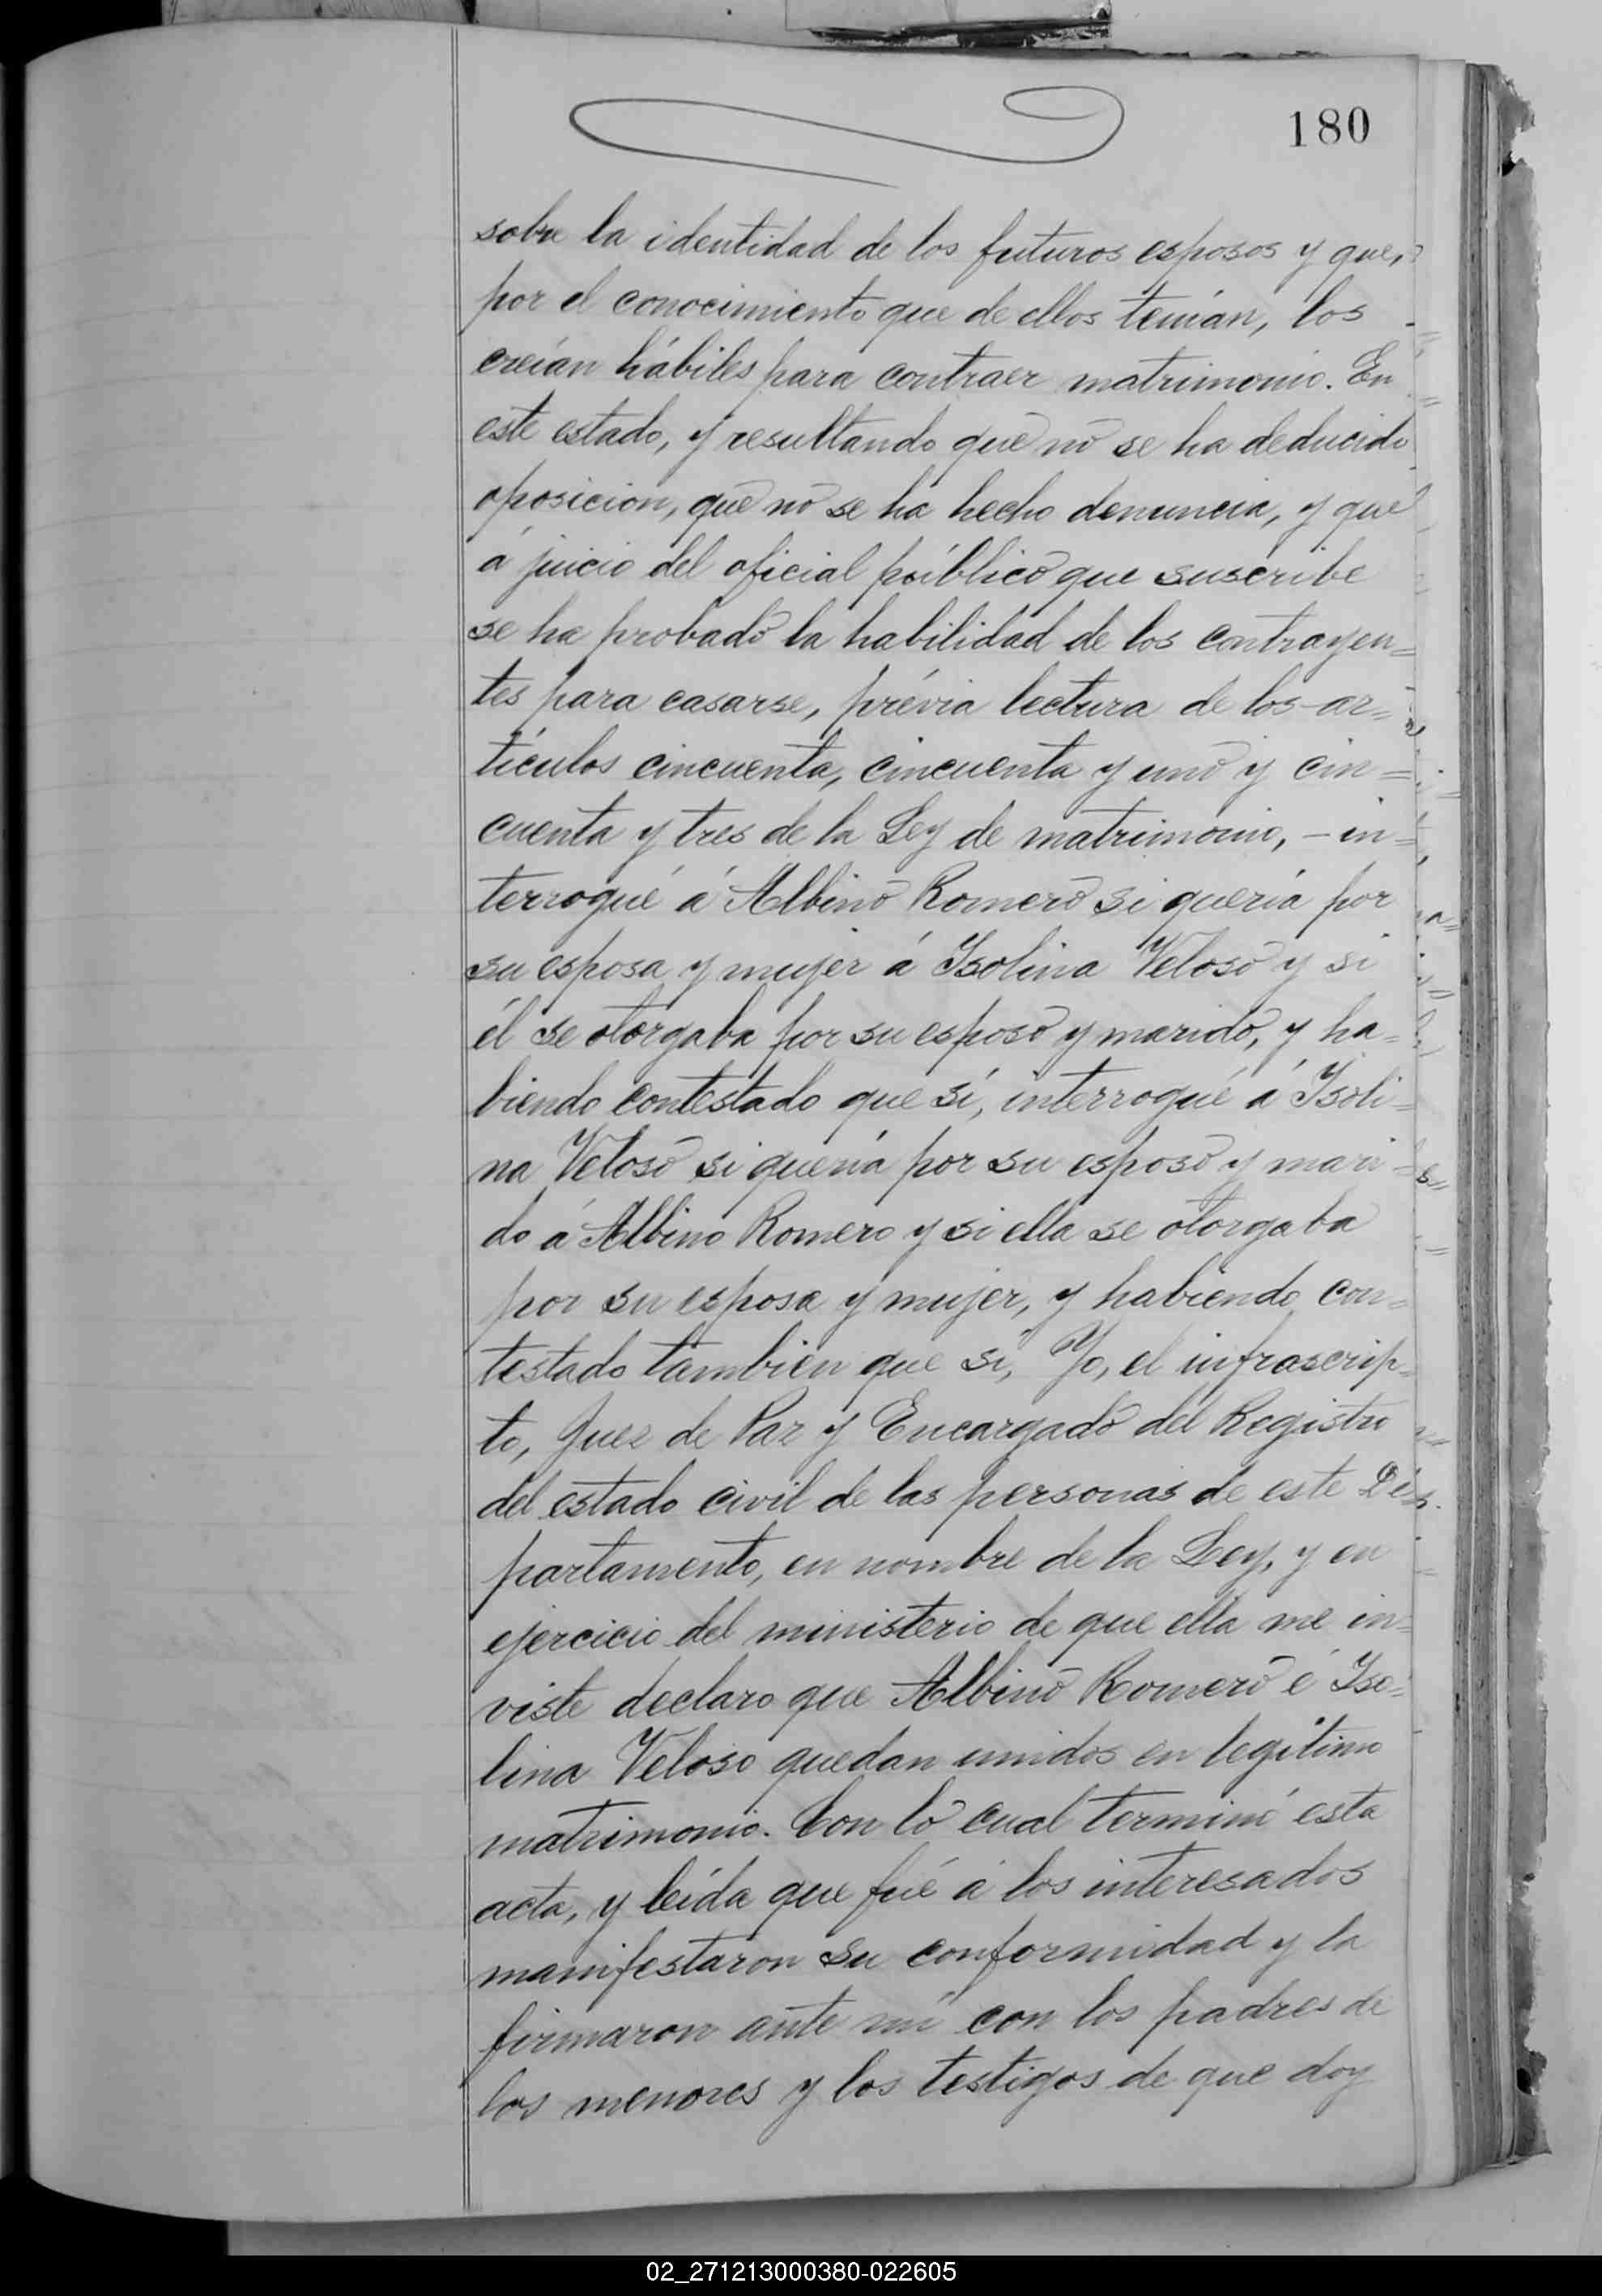 180
sobre la identidad de los futuros esposos y que,
por el conocimiento que de ellos tenían, los
creían hábiles para contraer matrimonio. En
este estado, y resultando que no se ha deducido
oposicion, que no se ha hecho denuncia, y que
á juicio del oficial público que suscribe
se ha probado la habilidad de los contrayen=
tes para casarse, prévia lectura de los ar=
tículos cincuenta, cincuenta y uno y cin=
cuenta y tres de la Ley de matrimonio, – in=
terrogué á Albino Romero si quería por
su esposa y mujer á Isolina Veloso y si
él se otorgaba por su esposo y marido, y ha=
biendo contestado que sí, interrogué á Isoli=
na Veloso si quería por su esposo y mari=
do á Albino Romero y si ella se otorgaba
por su esposa y mujer, y habiendo con=
testado tambien que sí, Yo, el infrascrip=
to, Juez de Paz y Encargado del Registro
del estado civil de las personas de este De=
partamento, en nombre de la Ley, y en
ejercicio del ministerio de que ella me in=
viste declaro que Albino Romero é Iso=
lina Veloso quedan unidos en legítimo
matrimonio. Con lo cual terminé esta
acta, y leída que fué á los interesados
manifestaron su conformidad y la
firmaron ante mí con los padres de
los menores y los testigos de que doy
02_271213000380-022605